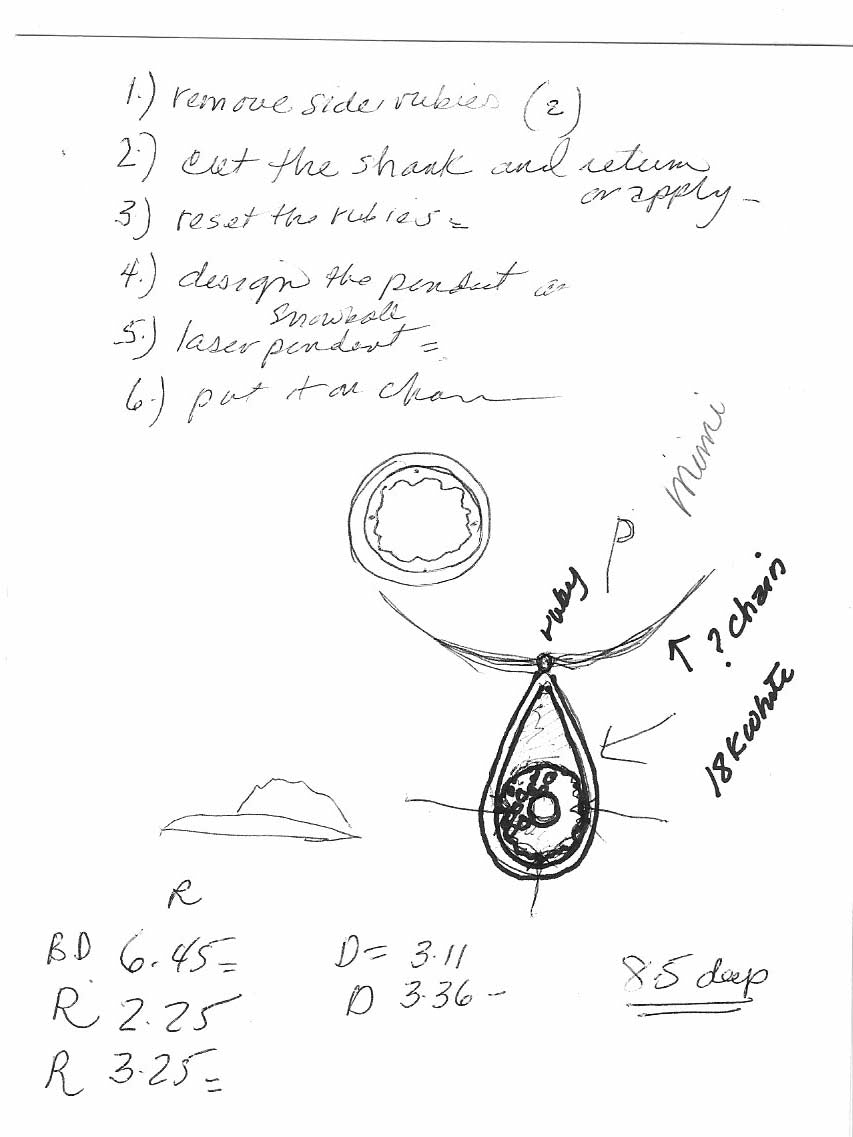 1.) remove side rubies (2)
2.) cut the shank and return
or apply -
3) reset the rubies =
4.) design the pendut
snowball
5.) laser pendent =
6.) put it on chain
mimi
P
ruby
? chain
18K white
R
BD 6.45 =
R 2.25
R 3.25 =
D = 3.11
D 3.36 -
8.5 deep